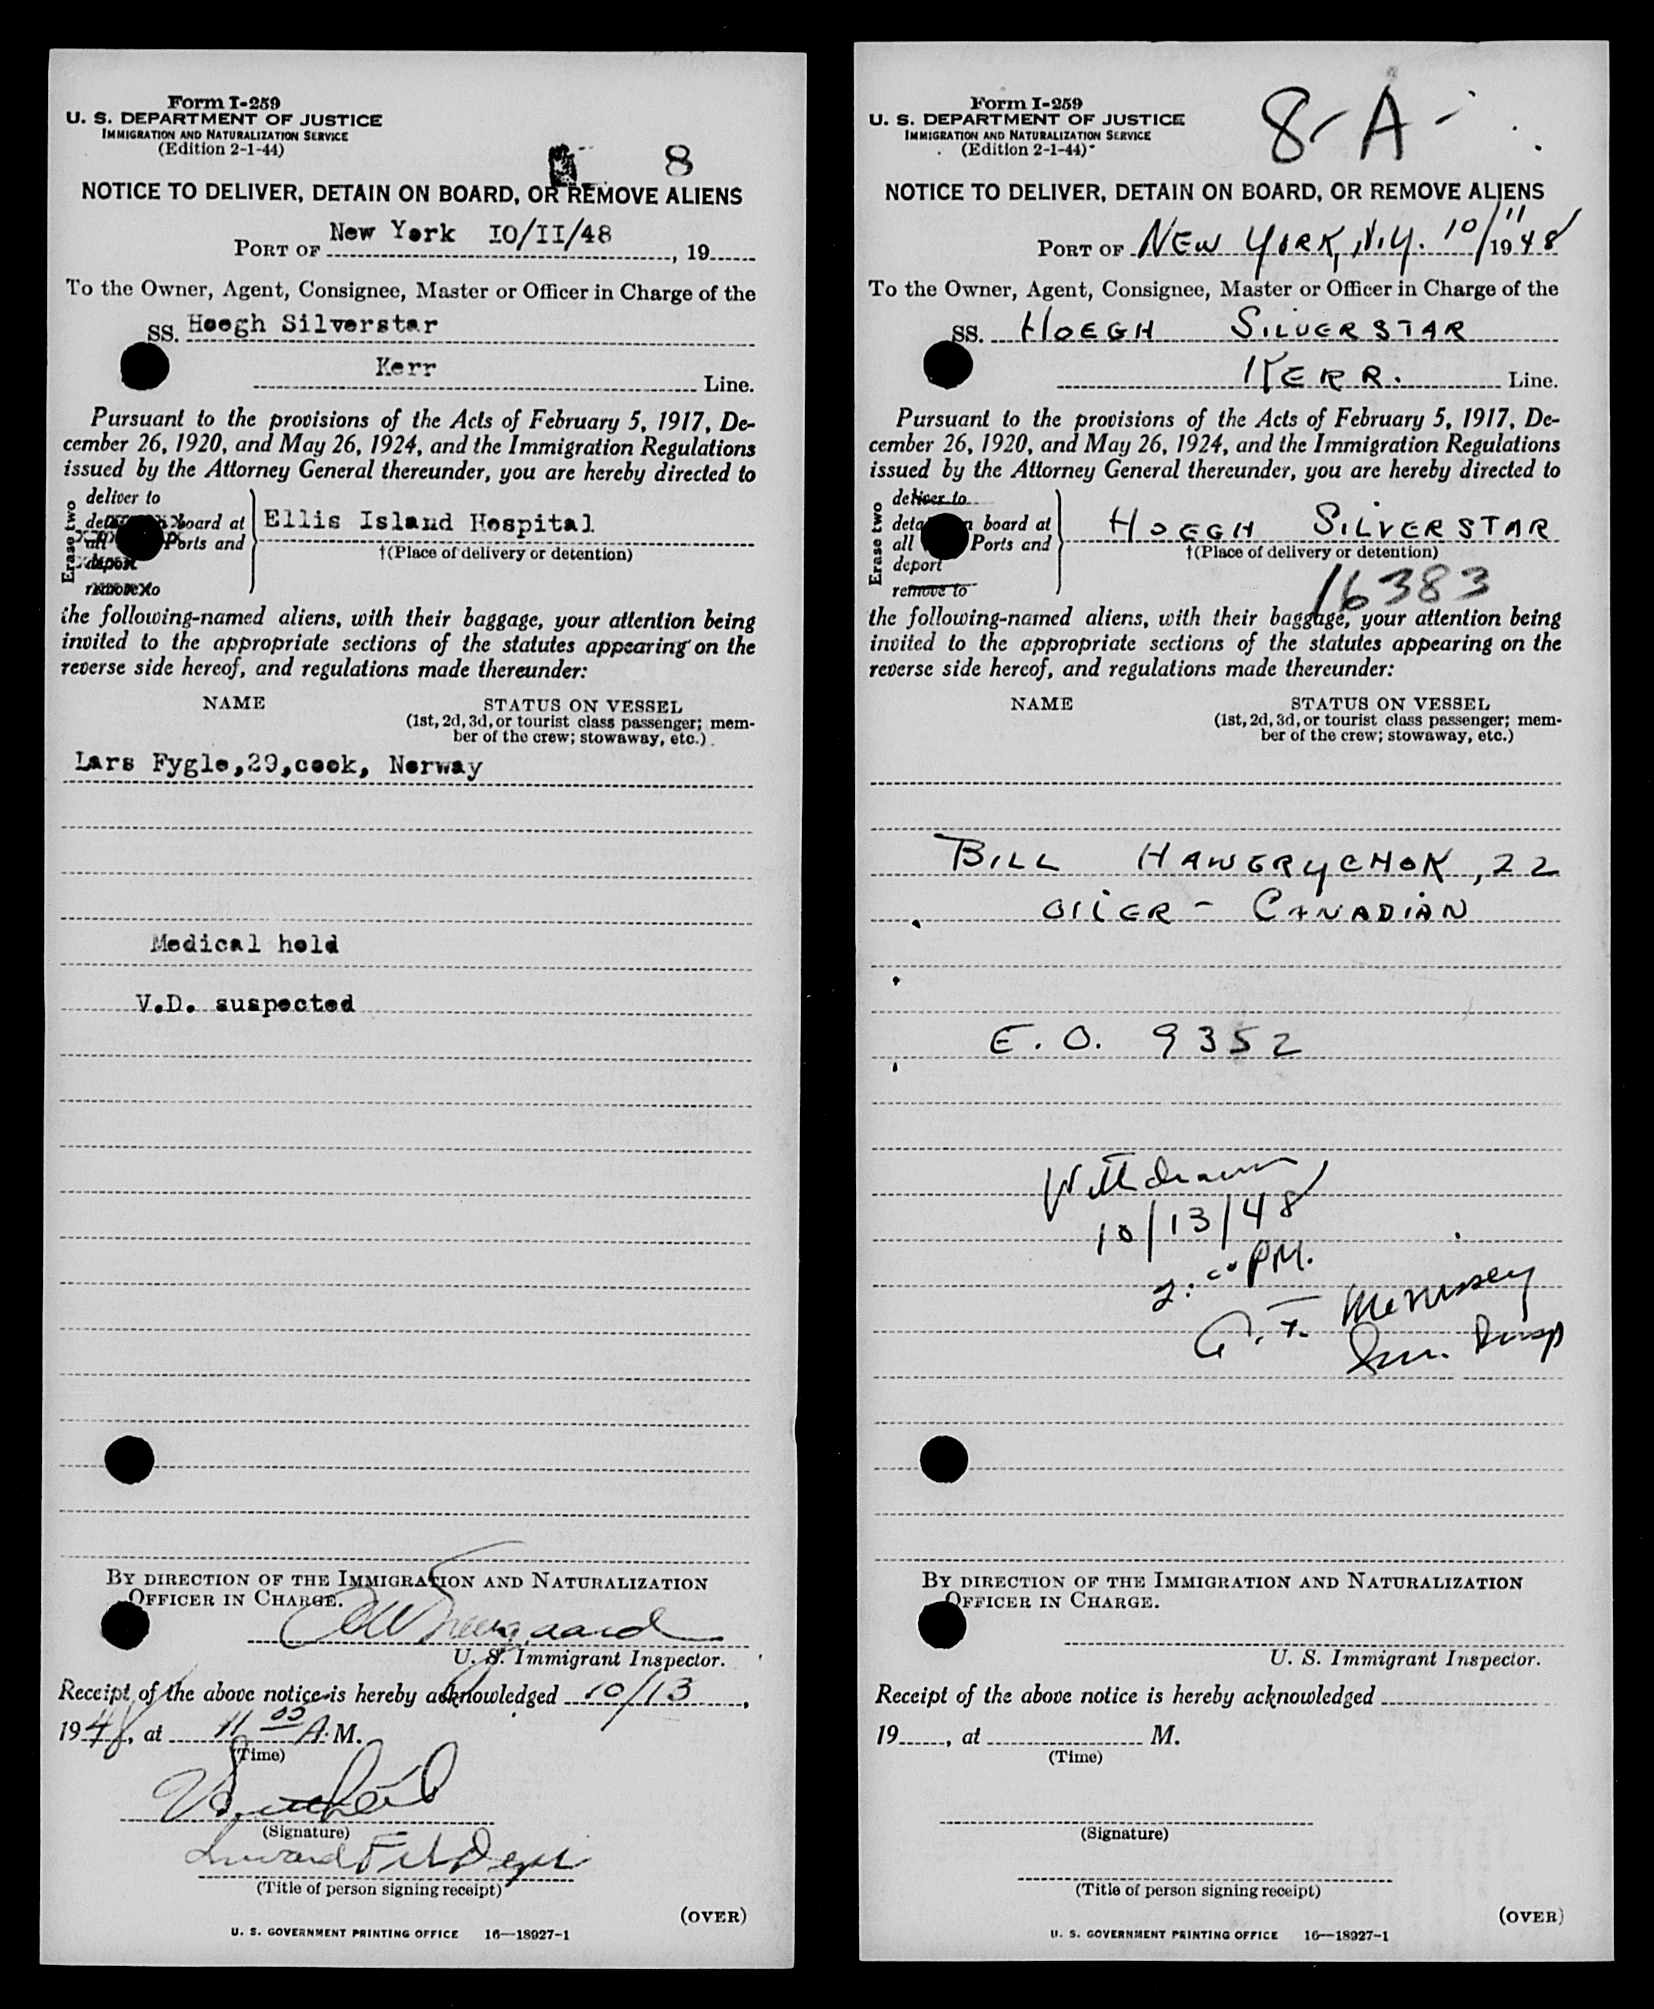 Form I-259
U. S. DEPARTMENT OF JUSTICE
IMMIGRATION AND NATURALIZATION SERVICE
(Edition 2-1-44)
8
NOTICE TO DELIVER, DETAIN ON BOARD, OR REMOVE ALIENS
PORT OF New York IO/II/48, 19
To the Owner, Agent, Consignee, Master or Officer in Charge of the
SS. Hoegh Silverstar
Kerr Line.
Pursuant to the provisions of the Acts of February 5, 1917, De-
cember 26, 1920, and May 26, 1924, and the Immigration Regulations
issued by the Attorney General thereunder, you are hereby directed to
Erase two
deliver to
board at
all Ports and
deport
remove to
Ellis Island Hospital
†(Place of delivery or detention)
the following-named aliens, with their baggage, your attention being
invited to the appropriate sections of the statutes appearing on the
reverse side hereof, and regulations made thereunder:
NAME STATUS ON VESSEL
(1st, 2d, 3d, or tourist class passenger; mem-
ber of the crew; stowaway, etc.)
Lars Fygle,29,cook, Norway
Medical hold
V.D. suspected
BY DIRECTION OF THE IMMIGRATION AND NATURALIZATION
OFFICER IN CHARGE.
U. S. Immigrant Inspector.
Receipt of the above notice is hereby acknowledged 10/13,
1948, at 11 00 A.M.
(Time)
(Signature)
(Title of person signing receipt)
(OVER)
U. S. GOVERNMENT PRINTING OFFICE 16—18927-1
Form I-259
U. S. DEPARTMENT OF JUSTICE
IMMIGRATION AND NATURALIZATION SERVICE
(Edition 2-1-44)
8-A-
NOTICE TO DELIVER, DETAIN ON BOARD, OR REMOVE ALIENS
PORT OF NEW YORK, N.Y. 10/11 1948
To the Owner, Agent, Consignee, Master or Officer in Charge of the
SS. HOEGH SILVERSTAR
KERR. Line.
Pursuant to the provisions of the Acts of February 5, 1917, De-
cember 26, 1920, and May 26, 1924, and the Immigration Regulations
issued by the Attorney General thereunder, you are hereby directed to
Erase two
deliver to
board at
all Ports and
deport
remove to
HOEGH SILVERSTAR
†(Place of delivery or detention)
16383
the following-named aliens, with their baggage, your attention being
invited to the appropriate sections of the statutes appearing on the
reverse side hereof, and regulations made thereunder:
NAME STATUS ON VESSEL
(1st, 2d, 3d, or tourist class passenger; mem-
ber of the crew; stowaway, etc.)
BILL HAWGRYCHOK, 22
OILER - CANADIAN
E. O. 9352
Withdrawn
10/13/48
2:00 PM.
Imm. Insp
BY DIRECTION OF THE IMMIGRATION AND NATURALIZATION
OFFICER IN CHARGE.
U. S. Immigrant Inspector.
Receipt of the above notice is hereby acknowledged
19, at M.
(Time)
(Signature)
(Title of person signing receipt)
(OVER)
U. S. GOVERNMENT PRINTING OFFICE 16—18927-1